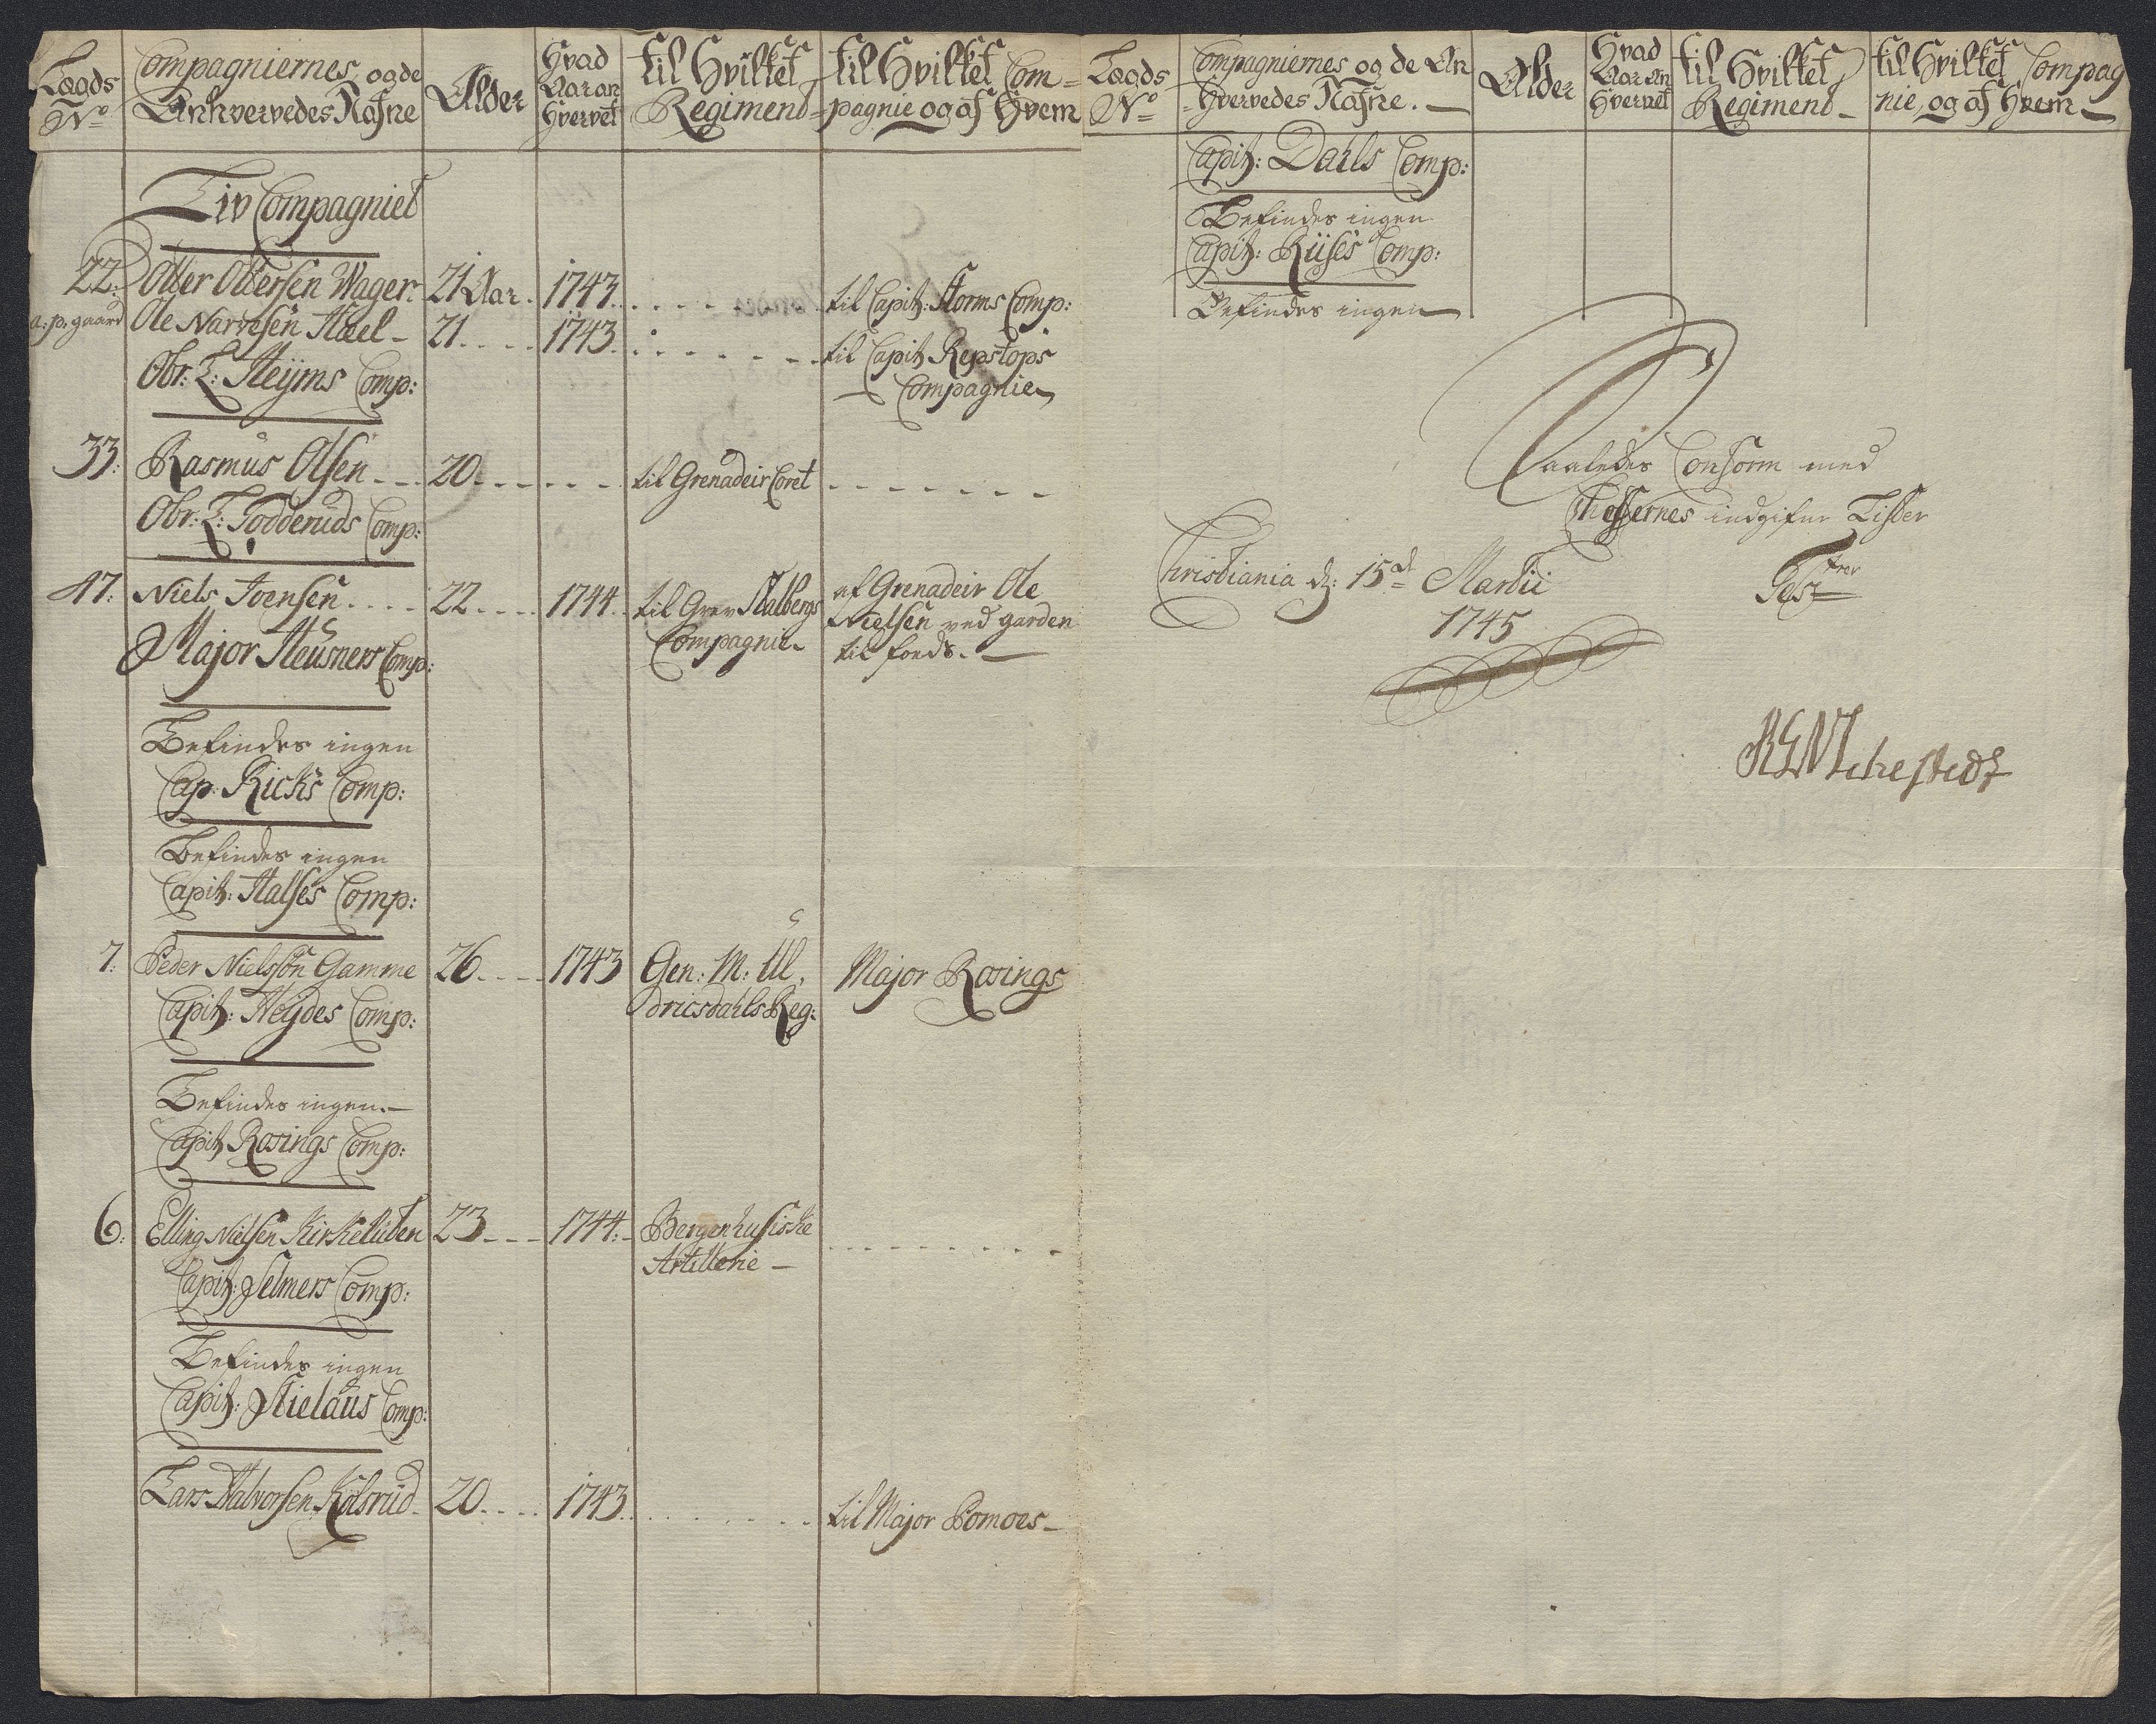 Lægds No
Compagniernes og de Anhvervedes Nafne
Alder
Hvad Aar an Hvervet
til Hvilket Regiment
til Hvilket Com=pagnie og af Hvem
Liv Compagniet
22. Otter Ottersen Wager 21 Aar. 1743. til Capit: Storms Comp:
a: p: gaard Ole Narvesen 21 1743. til Capit Repstops
Compagnie
Obr: L: Heyms Comp:
33: Rasmus Olsen 20 til Grenadeir Coret
Obr: L: Todderuds Comp:
47: Niels Joensen 22 1744. til Grev Compagnie af Grenadeir Ole
Nielsen ved garden
til fods.
Major Heusners Comp:
Befindes ingen
Cap: Ricks Comp:
Befindes ingen
Capit: Halses Comp:
7: Peder Nielssøn Gamme 26 1743 Gen: M: Ul, Major Rosings
dricsdahls Reg:
Capit: Heydes Comp:
Befindes ingen.
Capit Rosings Comp:
6: Elling Nielsen 23 1744. Bergenhusiske
Artillerie
Capit: Selmers Comp:
Befindes ingen
Capit: Nielaus Comp:
Lars Halvorsen Kolsrud 20 1743. til Major Pomoes
Lægds No
Compagniernes og de An=hvervedes Nafne.
Alder
Hvad Aar An Hvervet
til Hvilket Regiment
til Hvilket Compagnie, og af Hvem
Capit: Dahls Comp:
Befindes ingen
Capit: Riises Comp:
Befindes ingen
Saaledes Conform med
Chessernes indgifne Lister
Christiania d: 15de Martii Test
1745